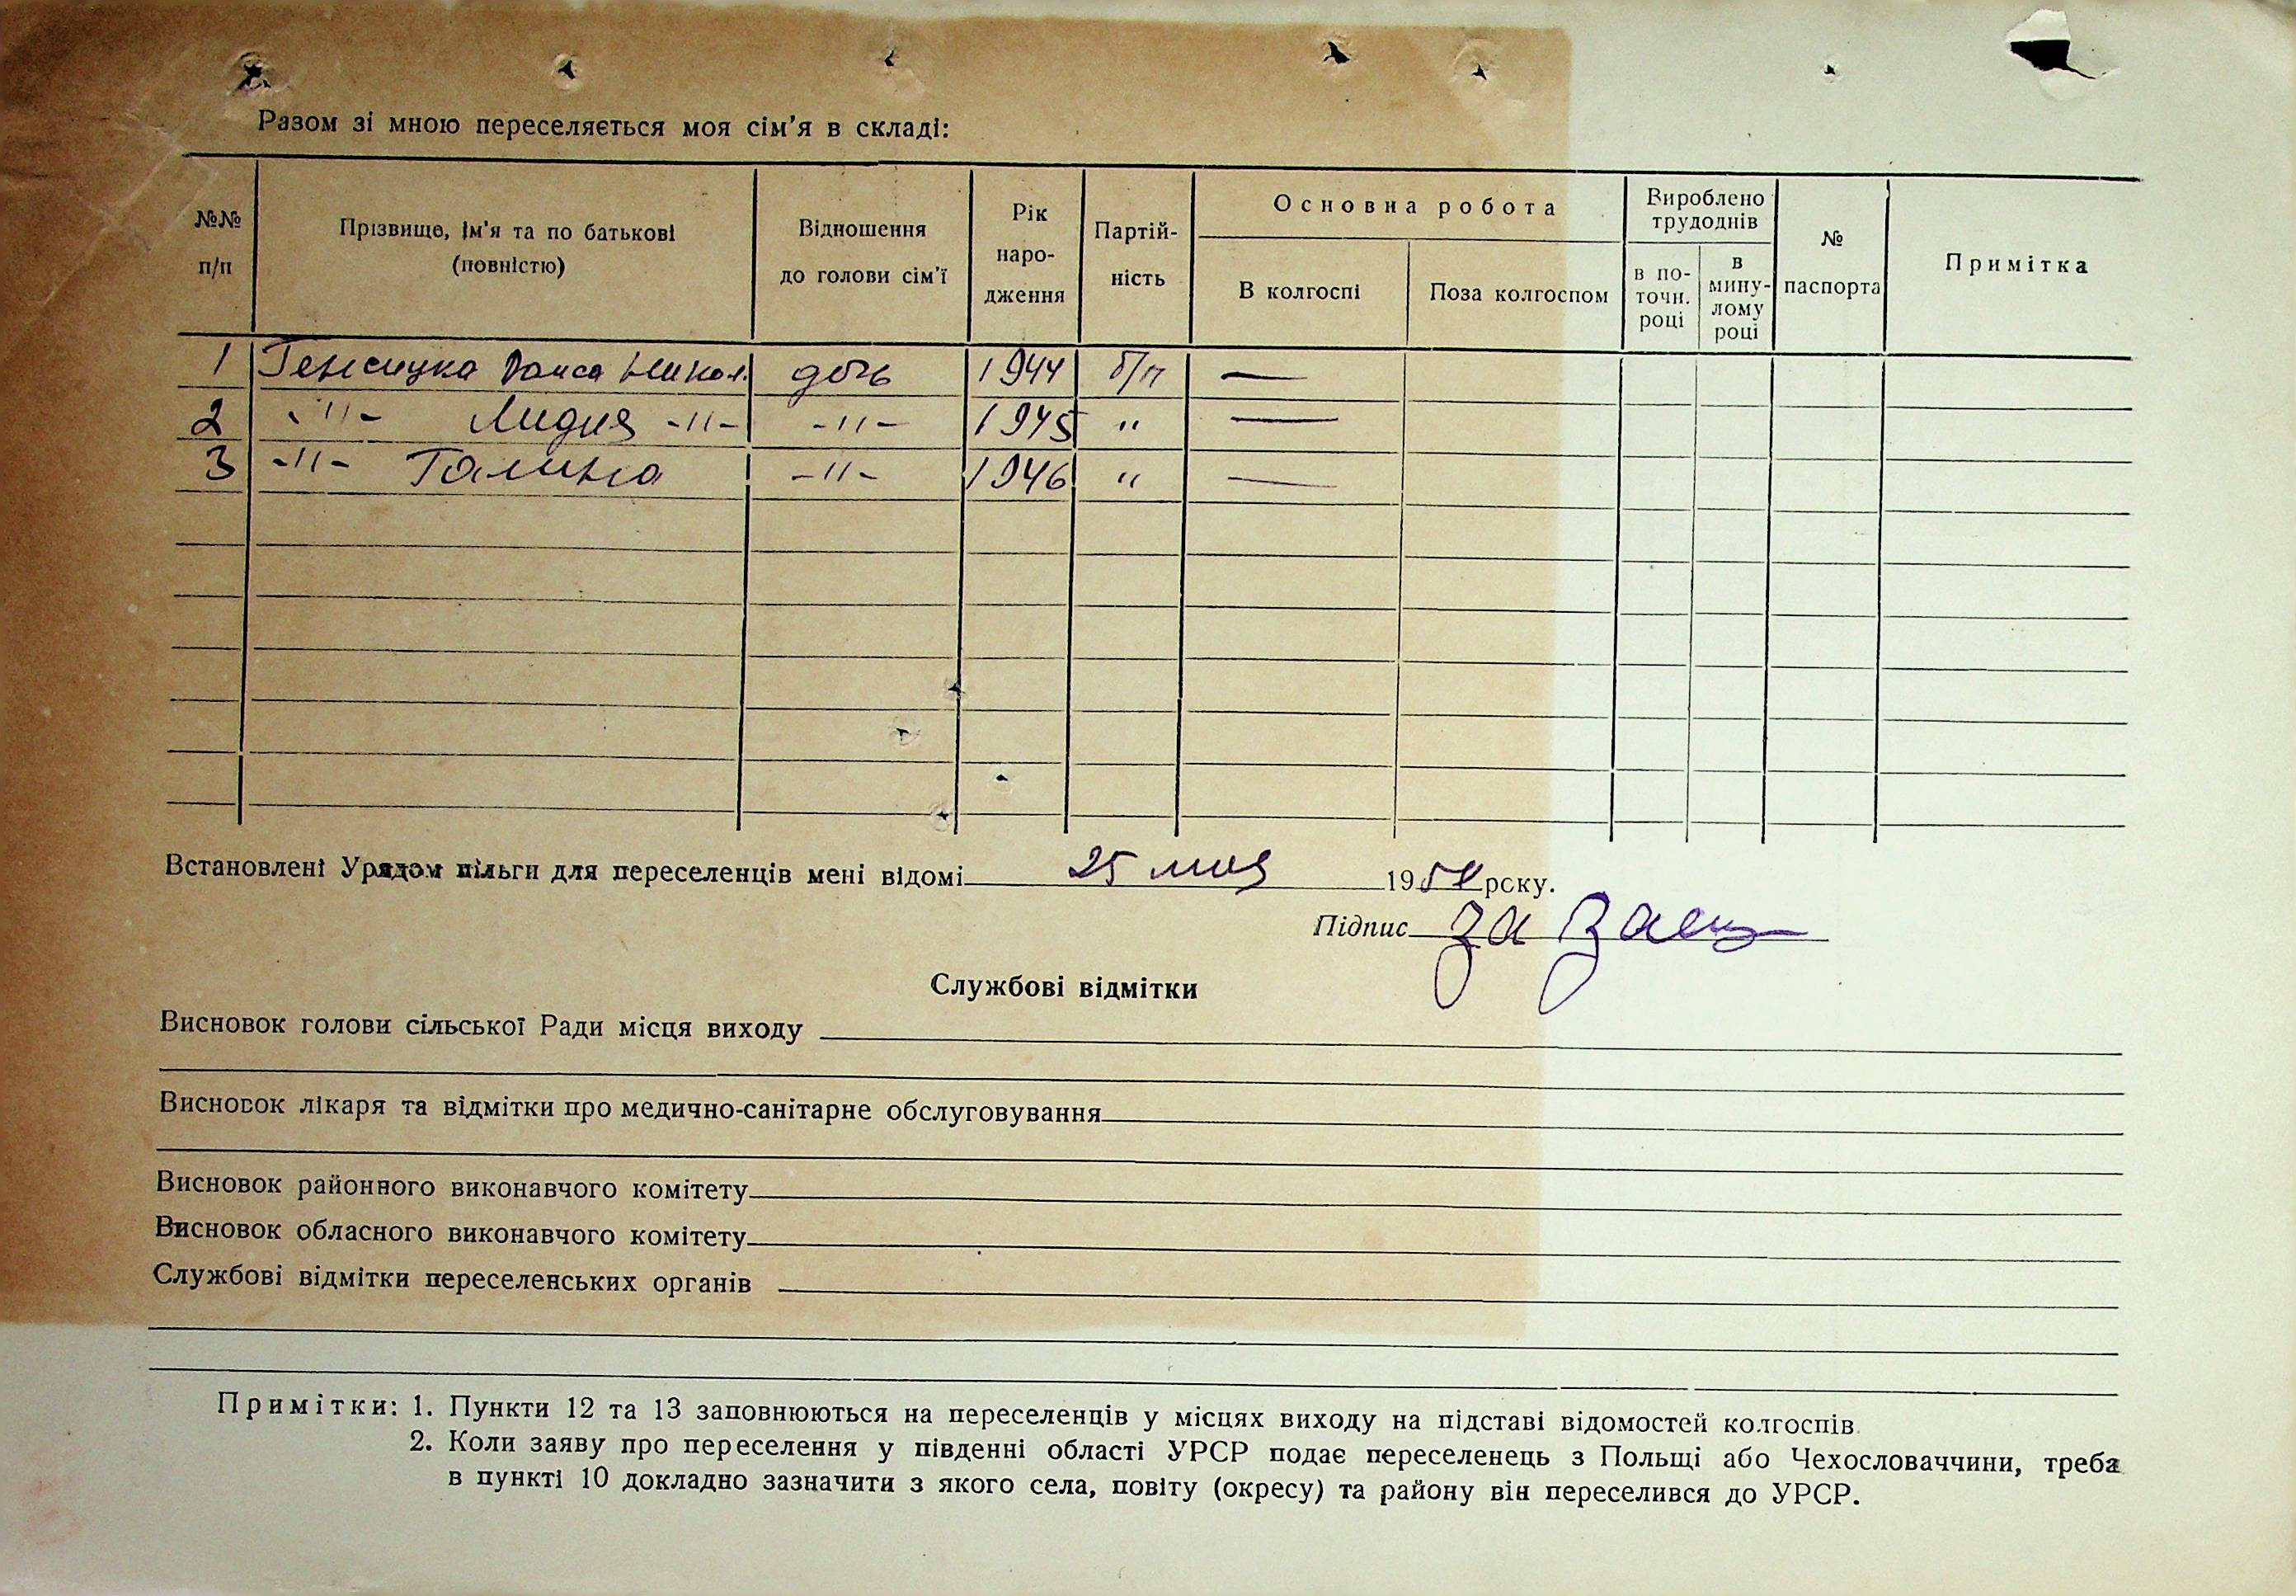 Разом зі мною переселяється моя сім'я в складі:
№№ п/п | Прізвище, ім'я та по батькові (повністю) | Відношення до голови сім'ї | Рік народження | Партій-ність | Основна робота | Вироблено трудоднів | № паспорта | Примітка
В колгоспі | Поза колгоспом | в по-точн. році | в мину-лому році
1 Раиса Никол. дочь 1944 б/п —
2 -"- Лидия -"- -"- 1945 " —
3 -"- Галина -"- 1946 " —
Встановлені Урядом пільги для переселенців мені відомі 25 мая 195 року.
Підпис за
Службові відмітки
Висновок голови сільської Ради місця виходу
Висновок лікаря та відмітки про медично-санітарне обслуговування
Висновок районного виконавчого комітету
Висновок обласного виконавчого комітету
Службові відмітки переселенських органів
Примітки: 1. Пункти 12 та 13 заповнюються на переселенців у місцях виходу на підставі відомостей колгоспів.
2. Коли заяву про переселення у південні області УРСР подає переселенець з Польщі або Чехословаччини, треба
в пункті 10 докладно зазначити з якого села, повіту (окресу) та району він переселився до УРСР.